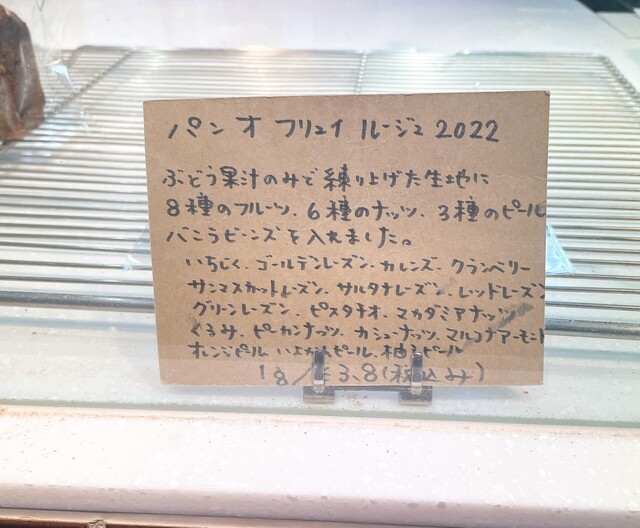 パン オ フリュイ ルージュ 2022
ぶどう果汁のみで練り上げた生地に
8種のフルーツ、6種のナッツ、3種のピール
バニラビーンズを入れました。
いちじく、ゴールデンレーズン、カレンズ、クランベリー
サンマスカットレーズン、サルタナレーズン、レッドレーズン
グリーンレーズン、ピスタチオ、マカダミアナッツ
くるみ、ピーカンナッツ、カシューナッツ、マルコナアーモンド
オレンジピール、いよかんピール、柚子ピール
1g/ 3.8(税込み)